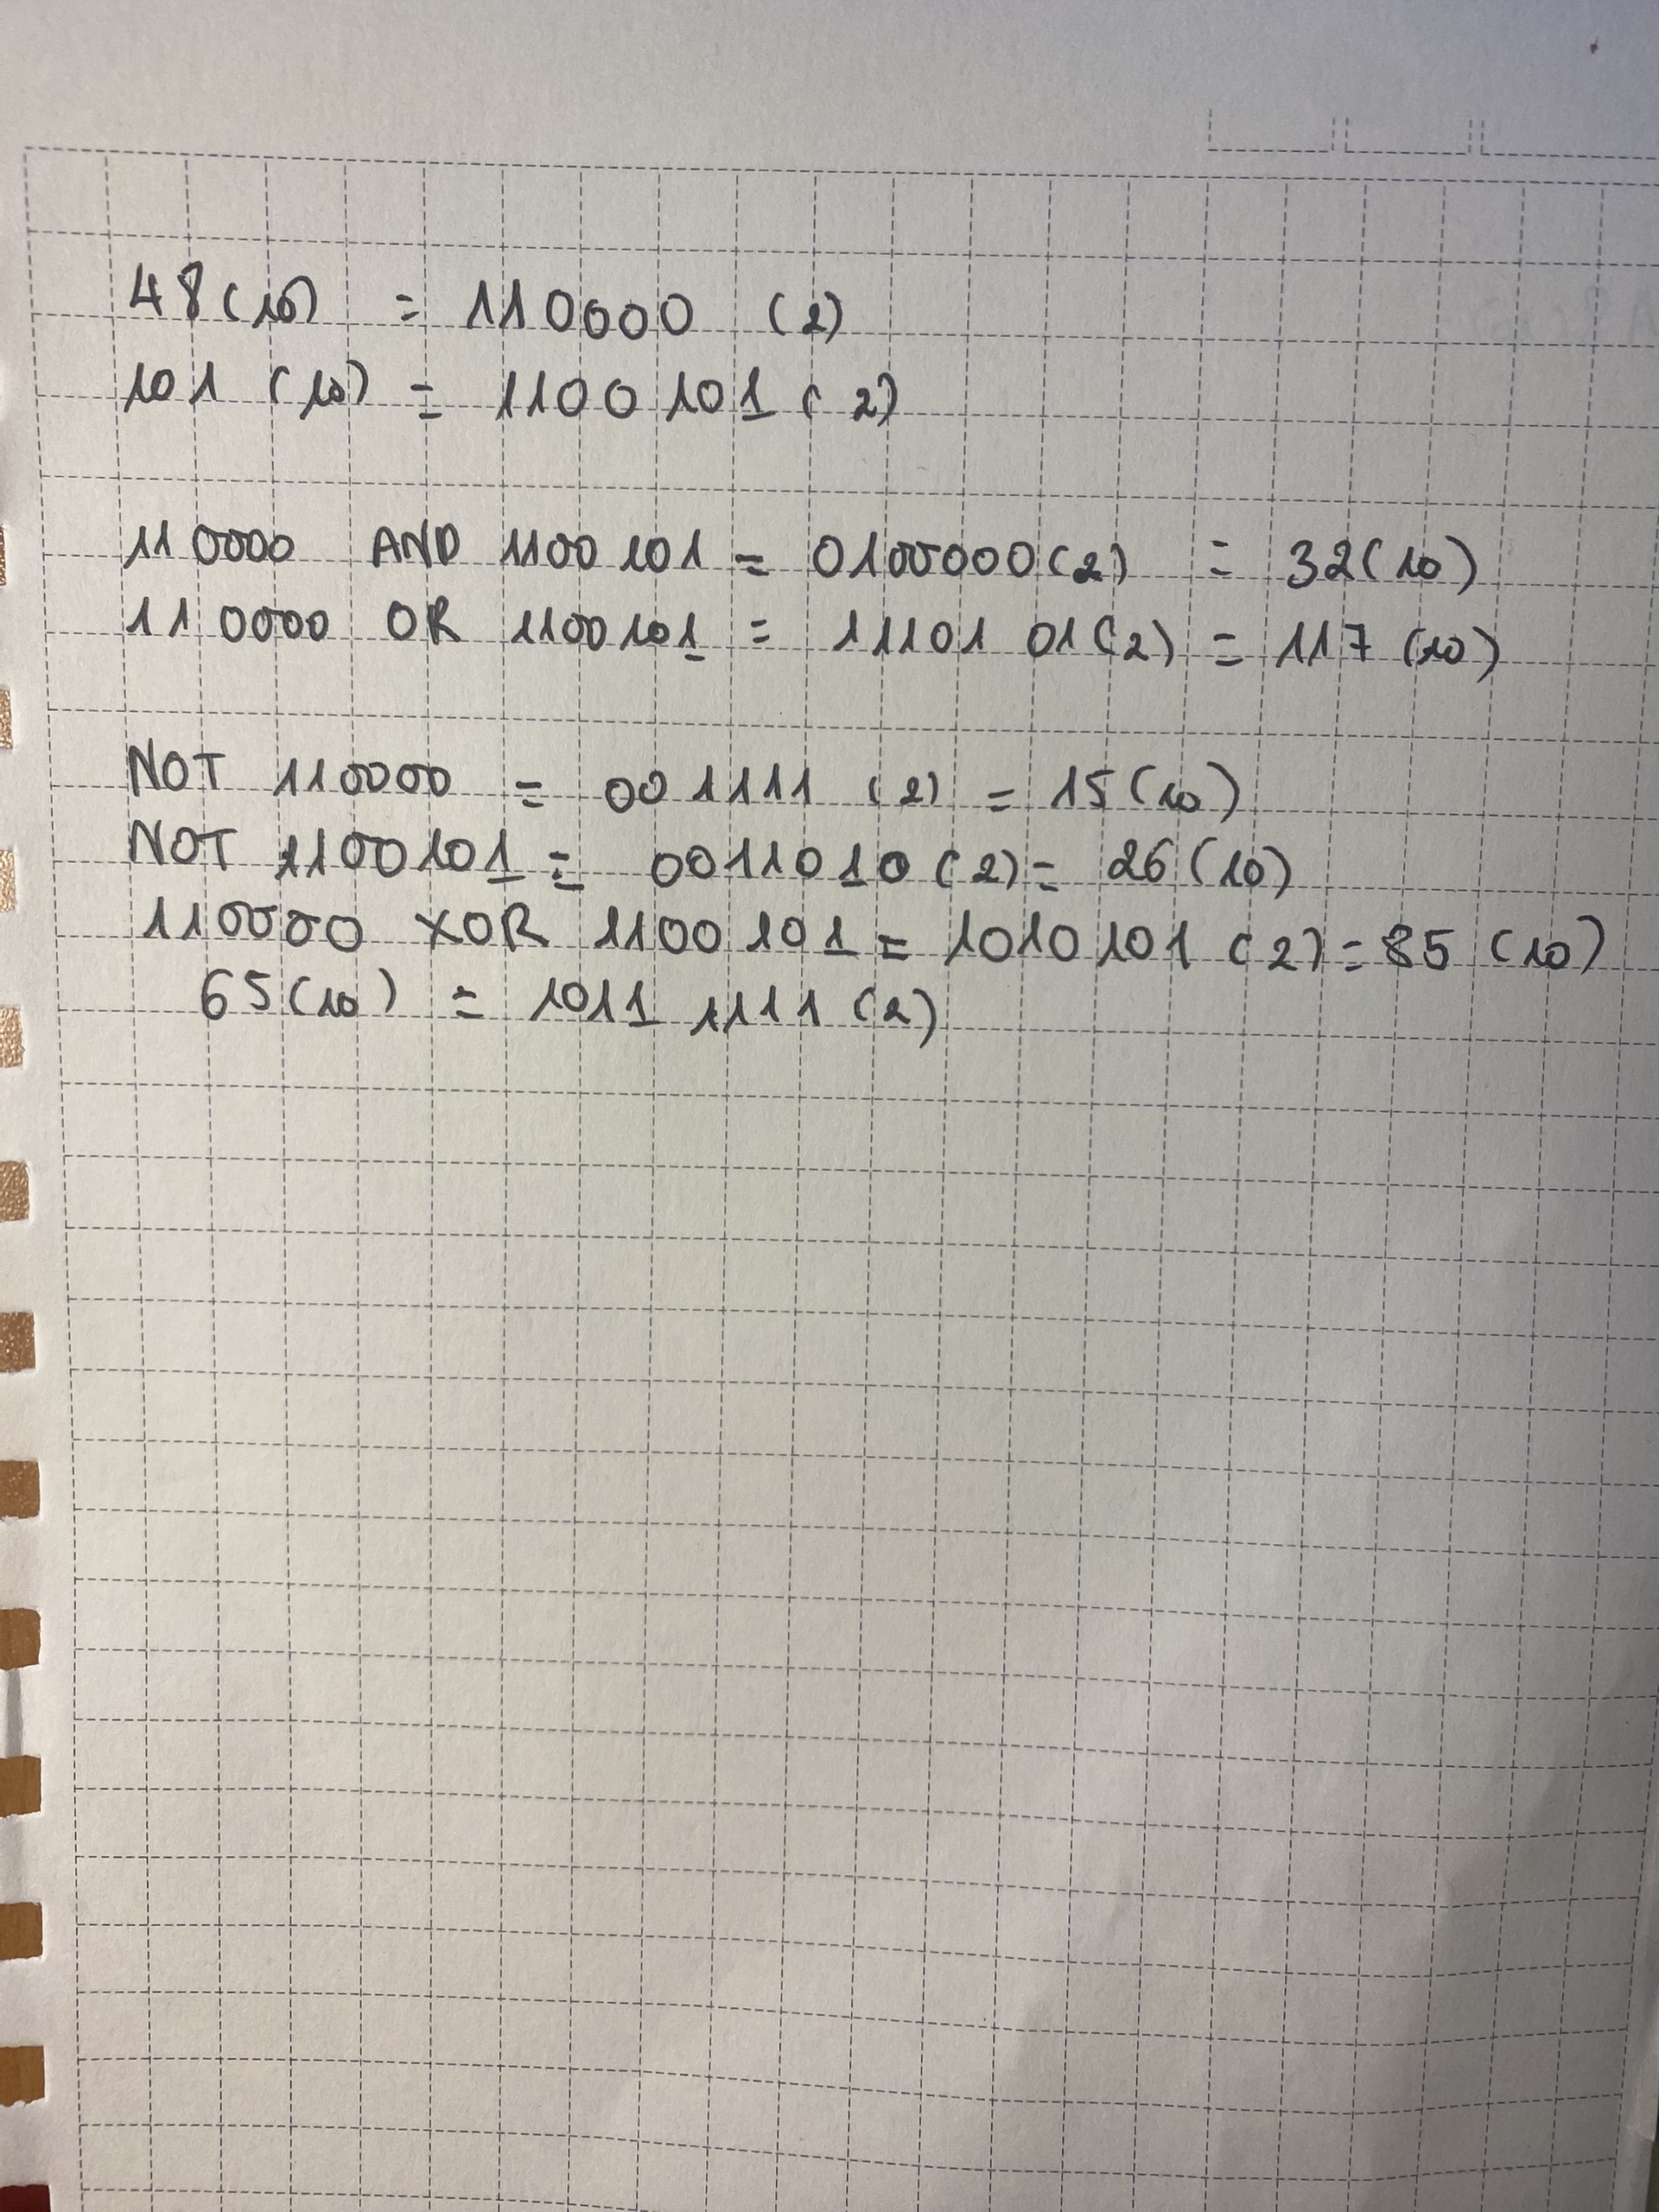 48(10) = 110000 (2)
101 (10) = 1100101 (2)
110000 AND 1100101 = 0100000(2) = 32(10)
110000 OR 1100101 = 1110101(2) = 117 (10)
NOT 110000 = 001111 (2) = 15(10)
NOT 1100101 = 0011010(2) = 26(10)
110000 XOR 1100101 = 1010101 (2) = 85 (10)
65(10) = 1011 1111 (2)